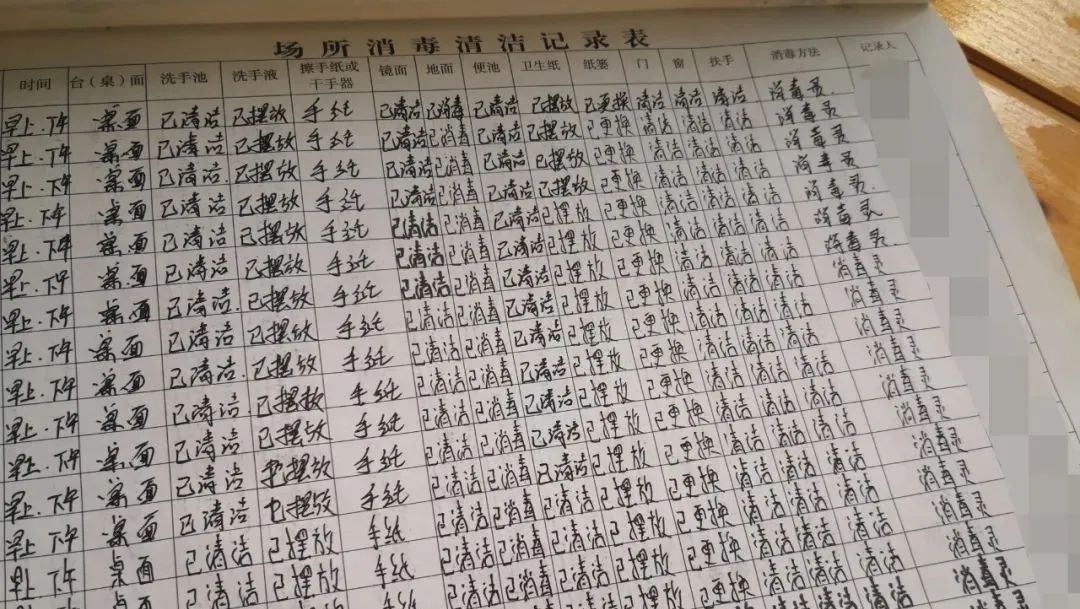 场所消毒清洁记录表
时间 台（桌）面 洗手池 洗手液 擦手纸或干手器 镜面 地面 便池 卫生纸 纸篓 门 窗 扶手 消毒方法 记录人
早上.下午 桌面 已清洁 已摆放 手纸 已清洁 已消毒 已清洁 已摆放 已更换 清洁 清洁 清洁 消毒灵
早上.下午 桌面 已清洁 已摆放 手纸 已清洁 已消毒 已清洁 已摆放 已更换 清洁 清洁 清洁 消毒灵
早上.下午 桌面 已清洁 已摆放 手纸 已清洁 已消毒 已清洁 已摆放 已更换 清洁 清洁 清洁 消毒灵
早上.下午 桌面 已清洁 已摆放 手纸 已清洁 已消毒 已清洁 已摆放 已更换 清洁 清洁 清洁 消毒灵
早上.下午 桌面 已清洁 已摆放 手纸 已清洁 已消毒 已清洁 已摆放 已更换 清洁 清洁 清洁 消毒灵
早上.下午 桌面 已清洁 已摆放 手纸 已清洁 已消毒 已清洁 已摆放 已更换 清洁 清洁 清洁 消毒灵
早上.下午 桌面 已清洁 已摆放 手纸 已清洁 已消毒 已清洁 已摆放 已更换 清洁 清洁 清洁 消毒灵
早上.下午 桌面 已清洁 已摆放 手纸 已清洁 已消毒 已清洁 已摆放 已更换 清洁 清洁 清洁 消毒灵
早上.下午 桌面 已清洁 已摆放 手纸 已清洁 已消毒 已清洁 已摆放 已更换 清洁 清洁 清洁 消毒灵
早上.下午 桌面 已清洁 已摆放 手纸 已清洁 已消毒 已清洁 已摆放 已更换 清洁 清洁 清洁 消毒灵
早上.下午 桌面 已清洁 已摆放 手纸 已清洁 已消毒 已清洁 已摆放 已更换 清洁 清洁 清洁 消毒灵
早上.下午 桌面 已清洁 已摆放 手纸 已清洁 已消毒 已清洁 已摆放 已更换 清洁 清洁 清洁 消毒灵